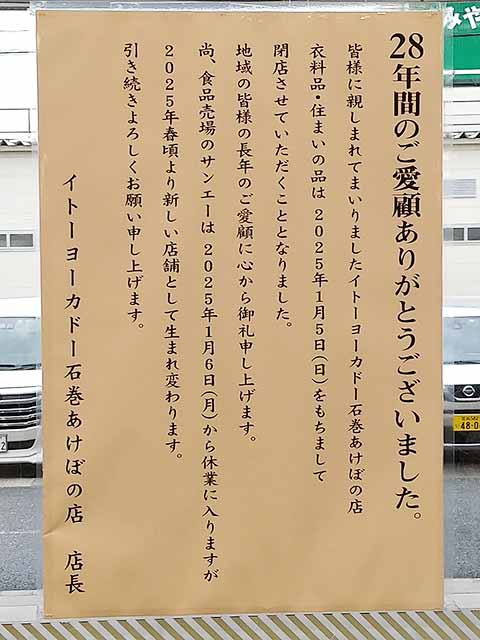 28年間のご愛顧ありがとうございました。
皆様に親しまれてまいりましたイトーヨーカドー石巻あけぼの店
衣料品・住まいの品は 2025年1月5日(日)をもちまして
閉店させていただくこととなりました。
地域の皆様の長年のご愛顧に心から御礼申し上げます。
尚、食品売場のサンエーは 2025年1月6日(月)から休業に入りますが
2025年春頃より新しい店舗として生まれ変わります。
引き続きよろしくお願い申し上げます。
イトーヨーカドー石巻あけぼの店 店長
みや